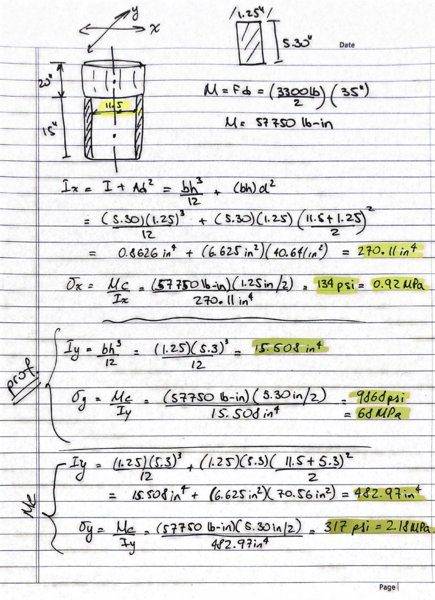 y
x
/1.25"/
5.30"
Date
20"
11.5
15"
M = Fd = (3300lb/2)(35")
M = 57750 lb-in
Ix = I + Ad² = bh³/12 + (bh)d²
= (5.30)(1.25)³/12 + (5.30)(1.25)(11.5+1.25/2)²
= 0.8626in⁴ + (6.625in²)(40.641in²) = 270.11in⁴
σx = Mc/Ix = (57750 lb-in)(1.25in/2)/270.11in⁴ = 134 psi = 0.92MPa
prof.
Iy = bh³/12 = (1.25)(5.3)³/12 = 15.508in⁴
σy = Mc/Iy = (57750 lb-in)(5.30in/2)/15.508in⁴ = 9868psi
= 68MPa
Me
Iy = (1.25)(5.3)³/12 + (1.25)(5.3)(11.5+5.3/2)²
= 15.508in⁴ + (6.625in²)(70.56in²) = 482.97in⁴
σy = Mc/Iy = (57750 lb-in)(5.30in/2)/482.97in⁴ = 317 psi = 2.18MPa
Page